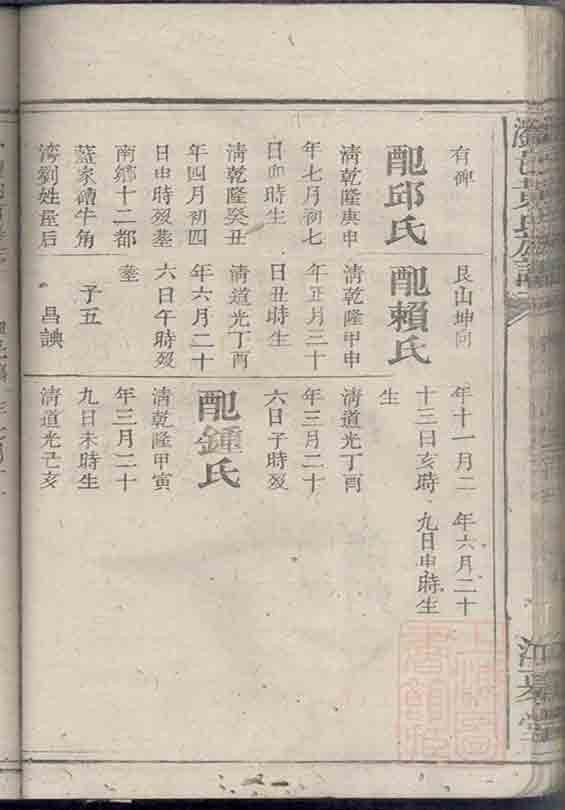 黃氏族譜
江夏堂
有碑
配邱氏
清乾隆庚申
年七月初七
日 時生
清乾隆癸丑
年四月初四
日申時歿葬
南鄉十二都
蓋家磧牛角
湾劉姓屋后
艮山坤向
配賴氏
清乾隆甲申
年正月三十
日丑時生
清道光丁酉
年六月二十
六日午時歿
葬
子五
昌諛
年十一月二
十三日亥時
生
清道光丁酉
年三月二十
六日子時歿
配鍾氏
清乾隆甲寅
年三月二十
九日未時生
清道光己亥
年六月二十
九日申時生
上海圖書館藏